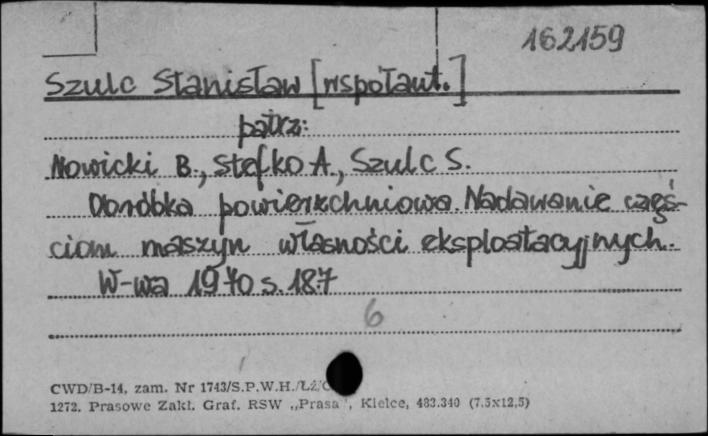 162159
Szulc Stanisław [współaut.]
patrz:
Nowicki B., Stefko A., Szulc S.
Obróbka powierzchniowa. Nadawanie częś-
ciom maszyn własności eksploatacyjnych.
W-wa 1970 s. 187
6
CWD/B-14, zam. Nr 1743/S.P.W.H./Łż/
1272. Prasowe Zakł. Graf. RSW „Prasa", Kielce, 483.340 (7.5x12,5)